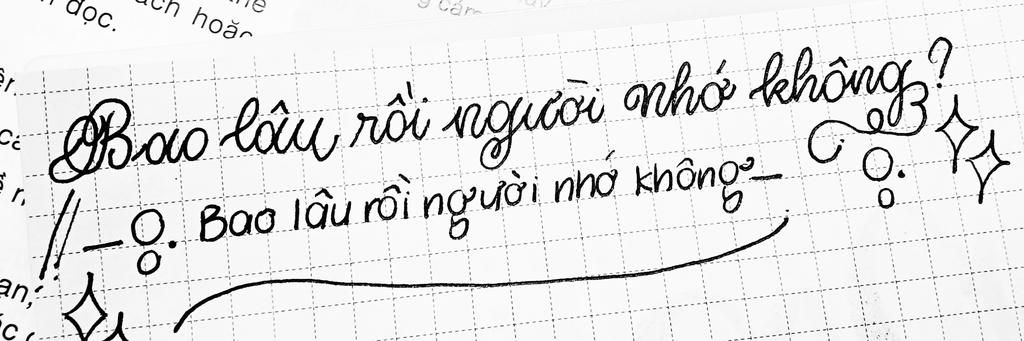 đọc.
ách hoặc
Bao lâu rồi người nhớ không?
Bao lâu rồi người nhớ không